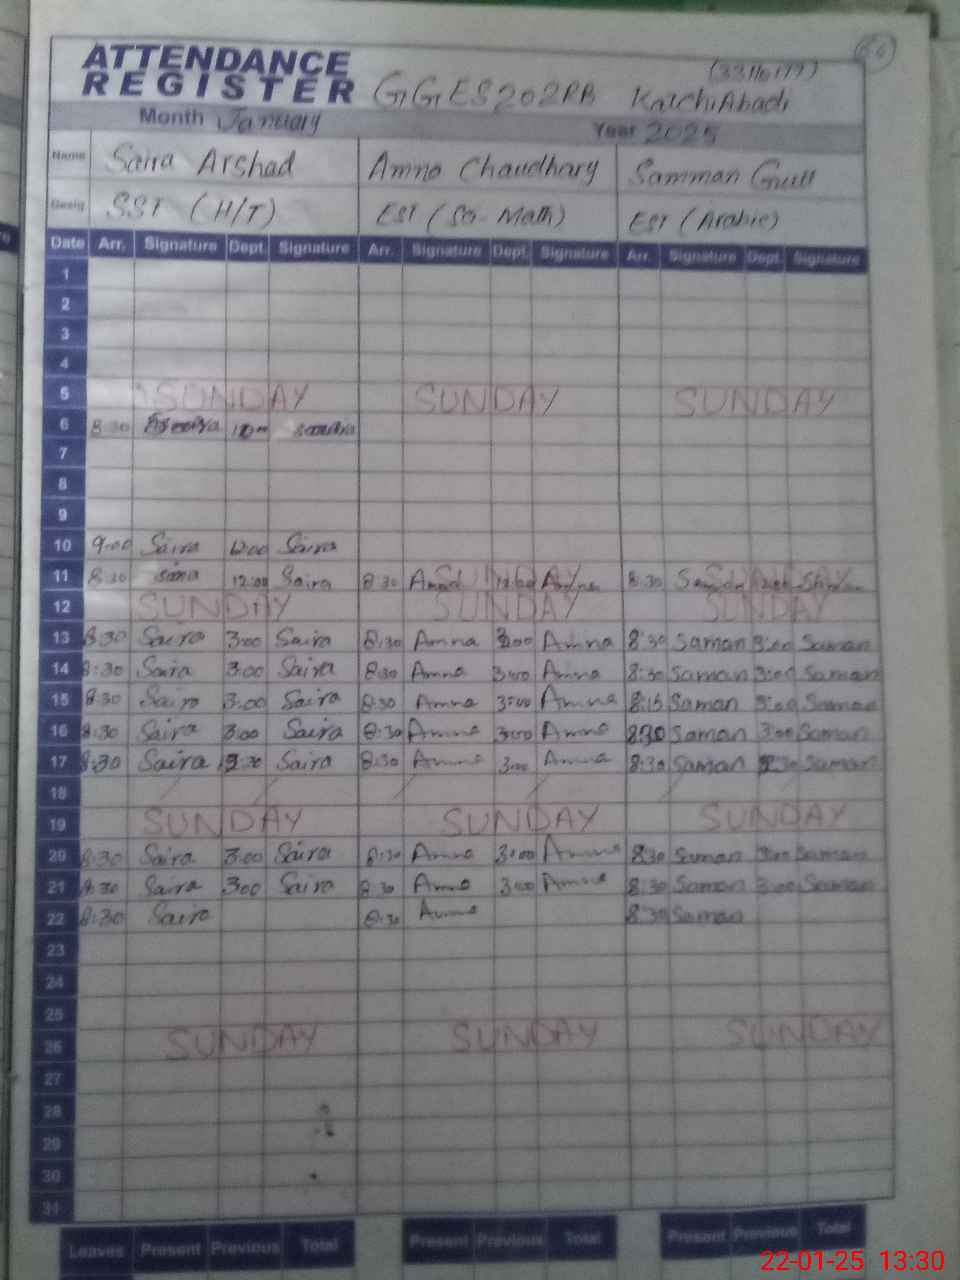 66
(33116177)
ATTENDANCE
REGISTER GGES202RB KatchiAbadi
Month January Year 2025
Name Saira Arshad Amna Chaudhary Samman Gull
Desig SST (H/T) EST (Sc-Math) EST (Arabic)
Date Arr. Signature Dept. Signature Arr. Signature Dept. Signature Arr. Signature Dept. Signature
1
2
3
4
5 SUNDAY SUNDAY SUNDAY
6 8:30
7
8
9
10 9:00 Saira 12:00 Saira
11 8:30 Saira 12:00 Saira 8:30 Amna SUNDAY 8:30 SUNDAY
12 SUNDAY SUNDAY SUNDAY
13 8:30 Saira 3:00 Saira 8:30 Amna 3:00 Amna 8:30 Saman 3:00 Saman
14 8:30 Saira 3:00 Saira 8:30 Amna 3:00 Amna 8:30 Saman 3:00 Saman
15 8:30 Saira 3:00 Saira 8:30 Amna 3:00 Amna 8:15 Saman 3:00 Saman
16 8:30 Saira 3:00 Saira 8:30 Amna 3:00 Amna 8:30 Saman 3:00 Saman
17 8:30 Saira Saira 8:30 Amna 3:00 Amna 8:30 Saman Saman
18
19 SUNDAY SUNDAY SUNDAY
20 8:30 Saira 3:00 Saira 8:30 Amna 3:00 Amna 8:30 Saman 3:00 Saman
21 8:30 Saira 3:00 Saira 8:30 Amna 3:00 Amna 8:30 Saman 3:00 Saman
22 8:30 Saira 8:30 Amna 8:30 Saman
23
24
25
26 SUNDAY SUNDAY SUNDAY
27
28
29
30
31
Leaves Present Previous Total Present Previous Total Present Previous Total
22-01-25 13:30